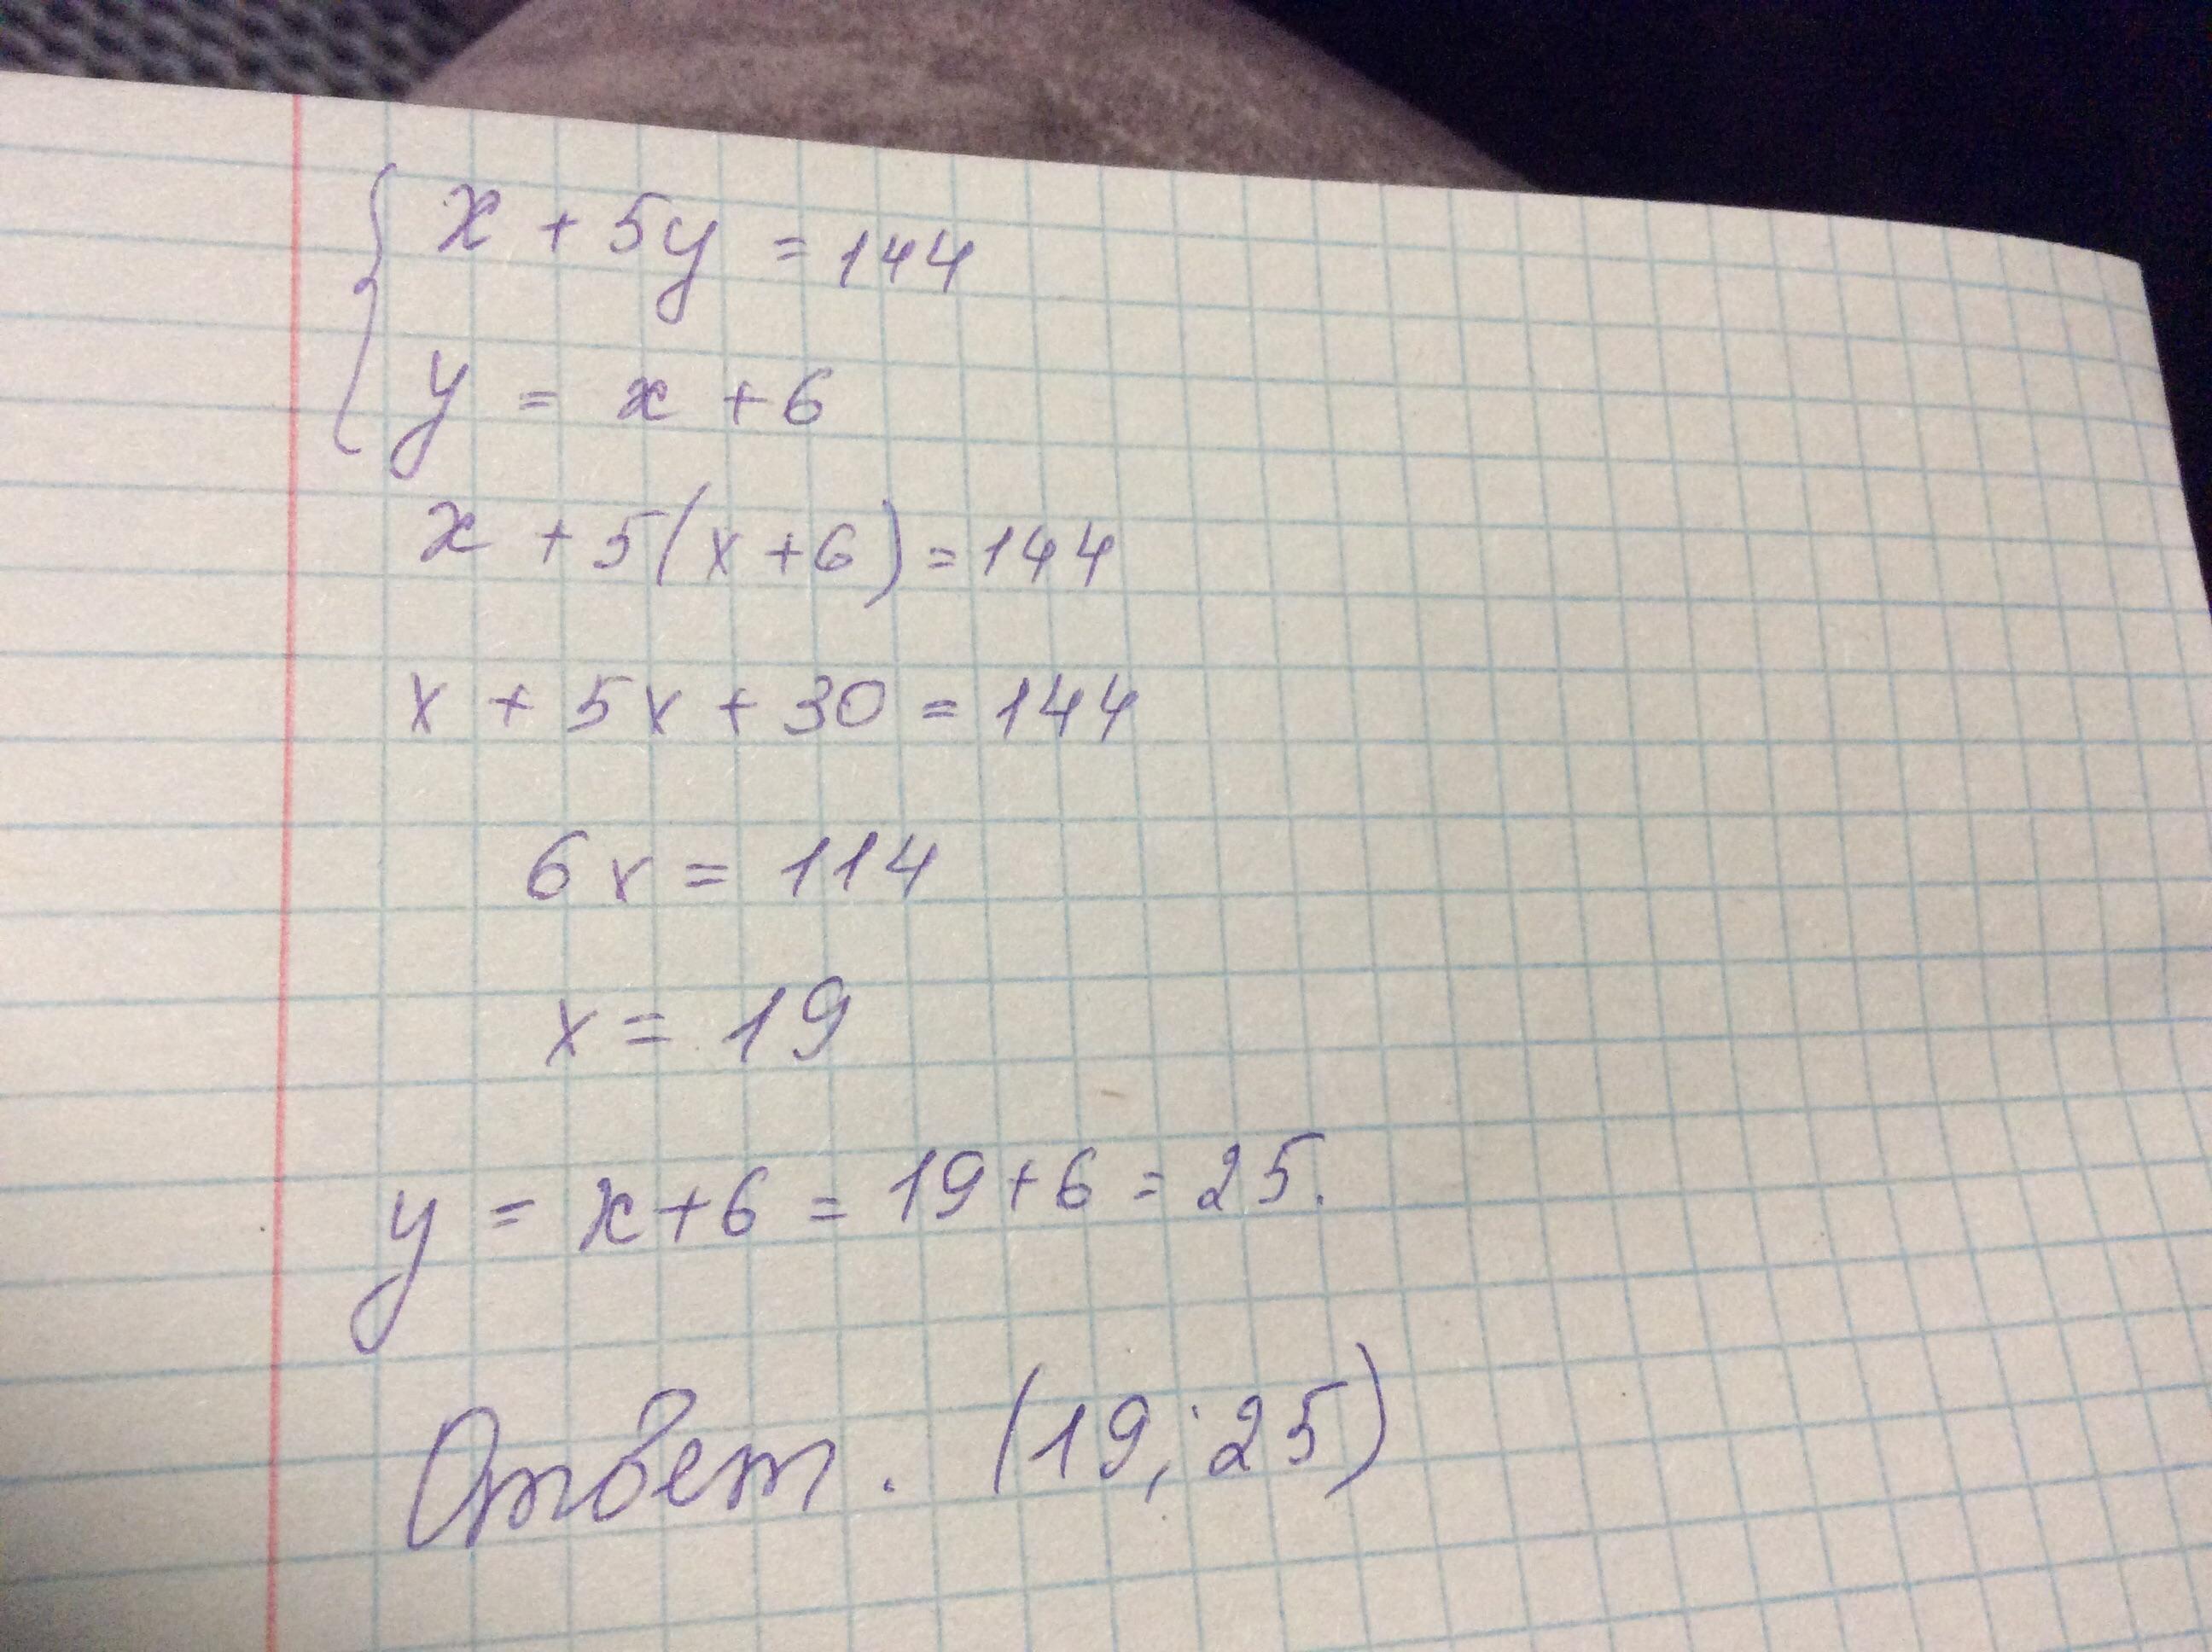 { x + 5y = 144
y = x + 6
x + 5(x + 6) = 144
x + 5x + 30 = 144
6x = 114
x = 19
y = x + 6 = 19 + 6 = 25.
Ответ. (19; 25)